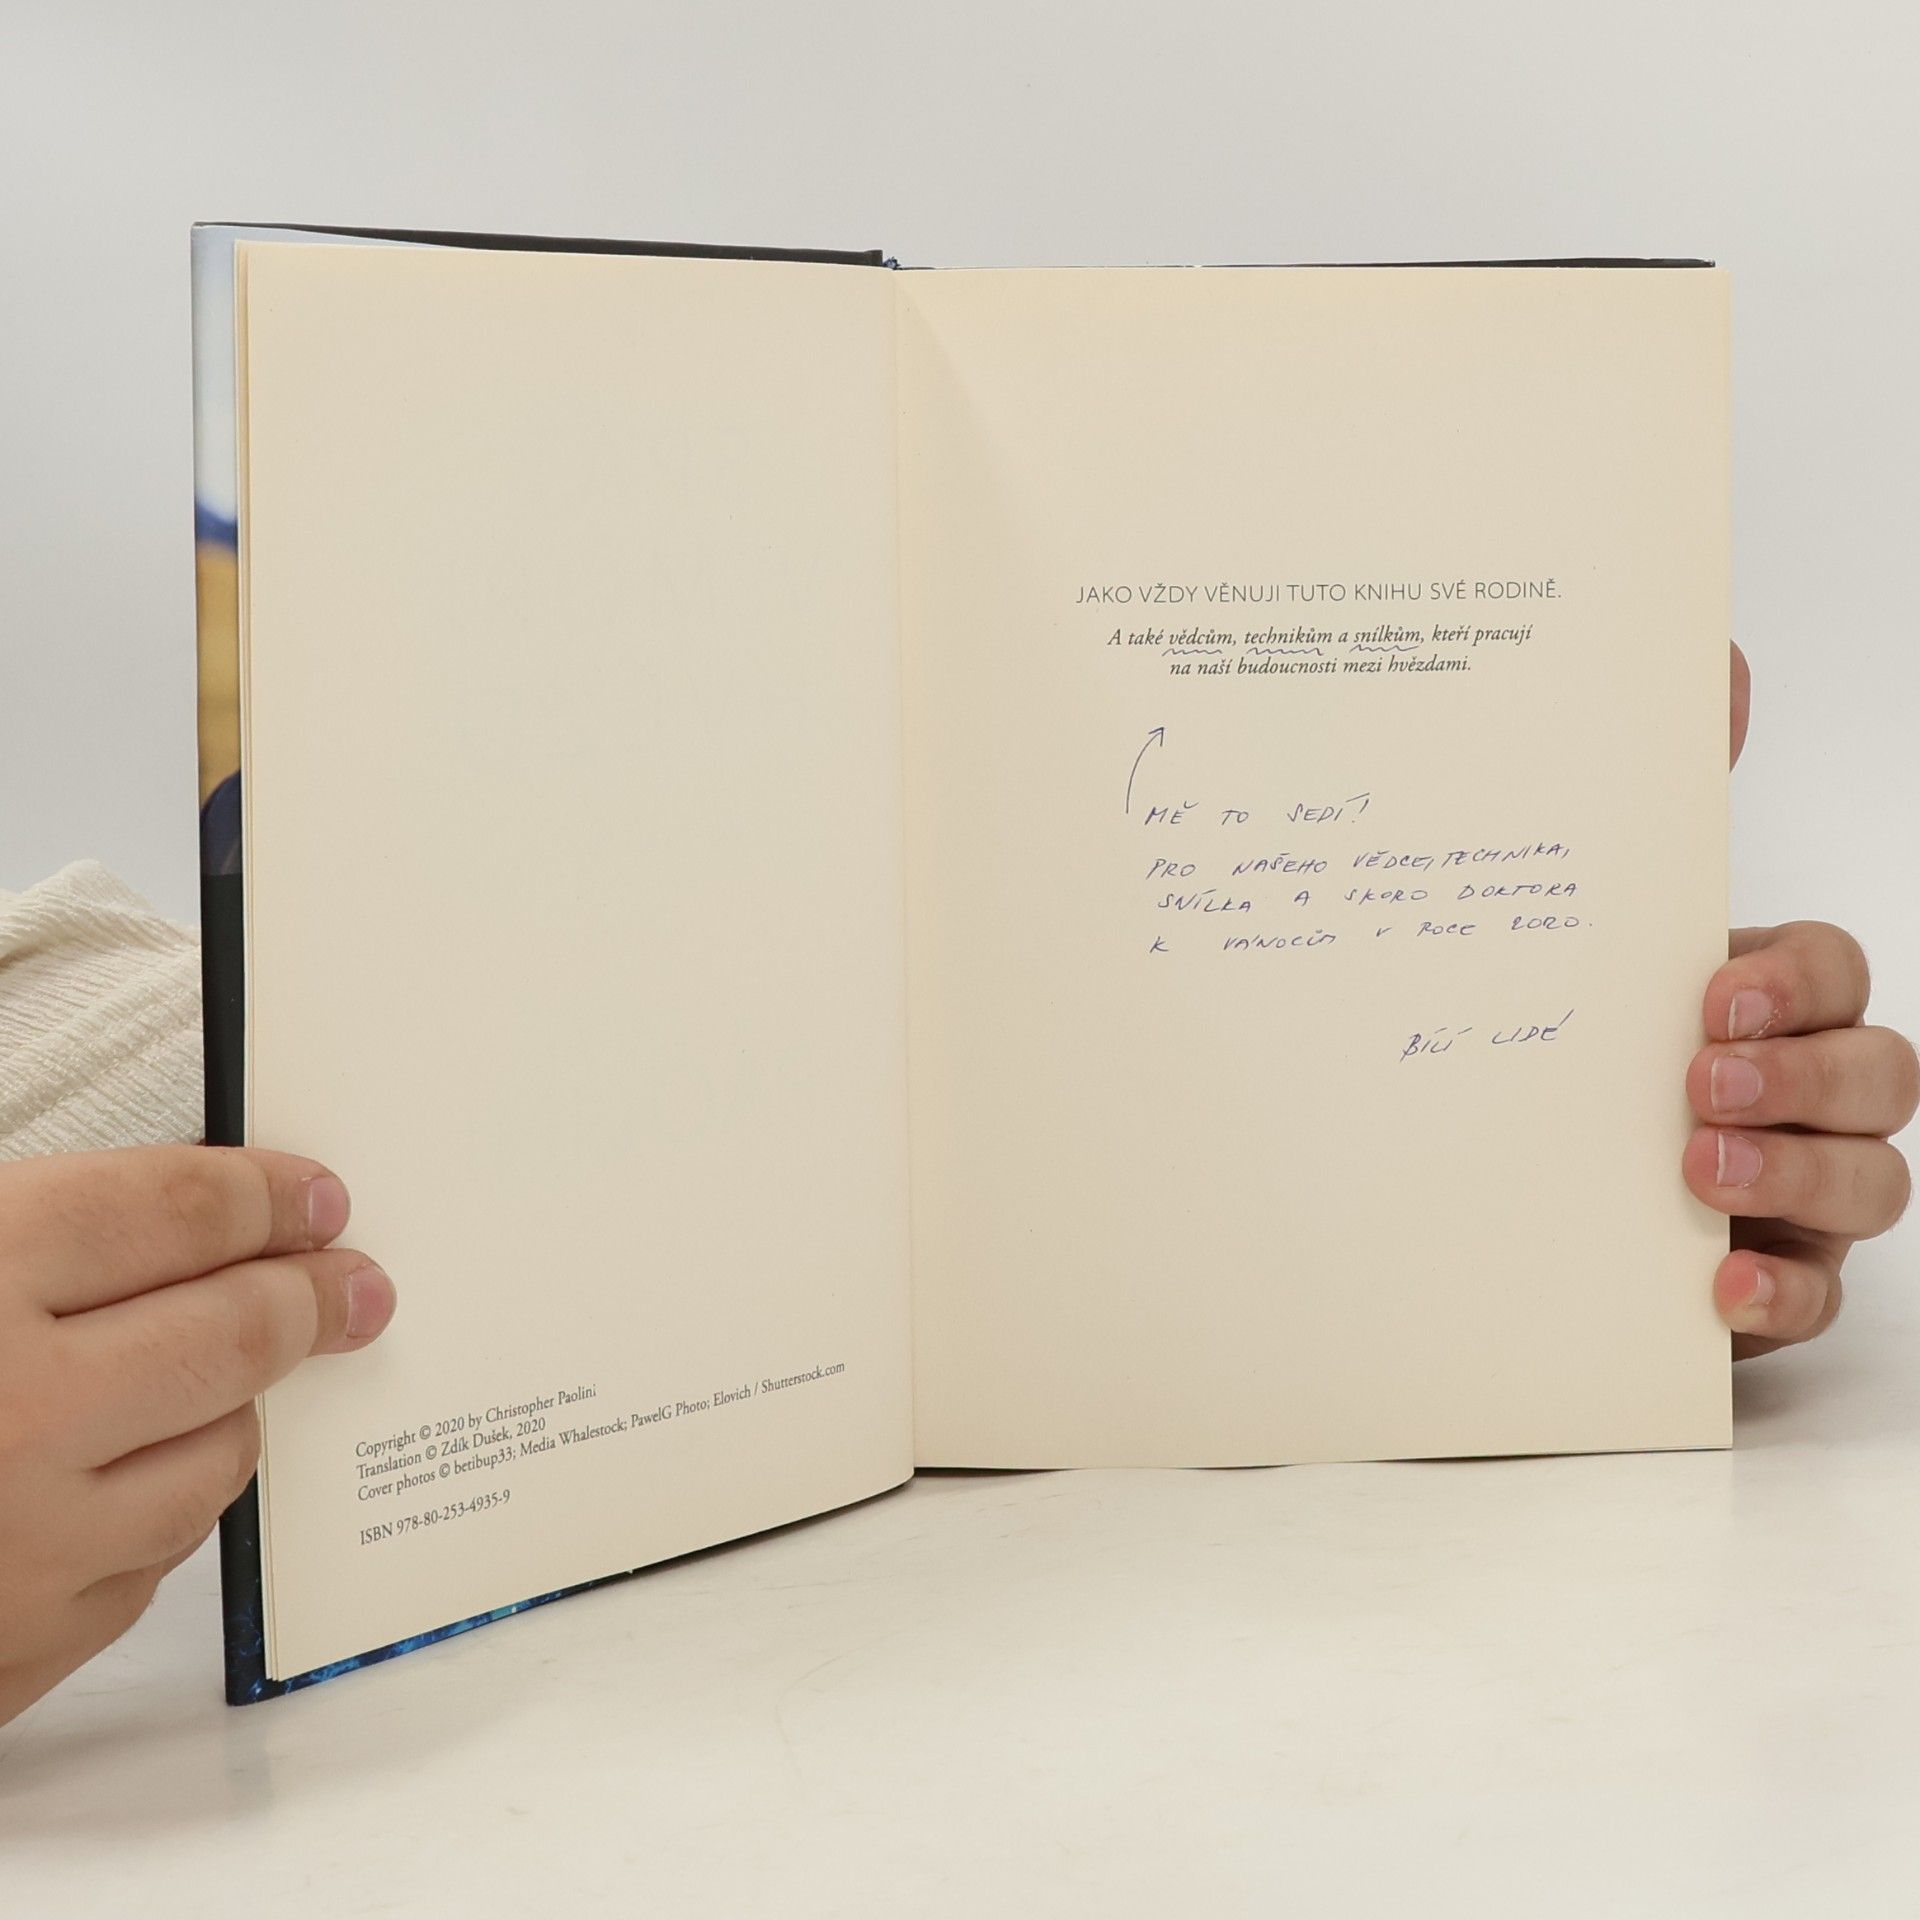 Copyright © 2020 by Christopher Paolini
Translation © Zdík Dušek, 2020
Cover photos © betibup33; Media Whalestock; PawelG Photo; Elovich / Shutterstock.com
ISBN 978-80-253-4935-9
JAKO VŽDY VĚNUJI TUTO KNIHU SVÉ RODINĚ.
A také vědcům, technikům a snílkům, kteří pracují
na naší budoucnosti mezi hvězdami.
MĚ TO SEDÍ!
PRO NAŠEHO VĚDCE, TECHNIKA,
SNÍLKA A SKORO DOKTORA
K VÁNOCŮM V ROCE 2020.
BÍLÍ LIDÉ